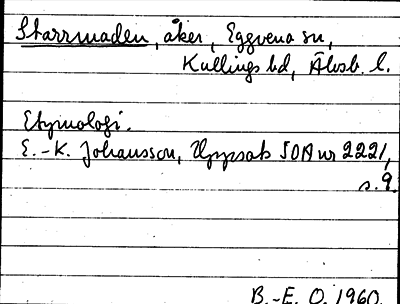 Starrmaden, åker, Eggvena sn,
Kullings hd, Älvsb. l.
Etymologi.
E.-K. Johansson, Uppsats SOA nr 2221,
s. 9.
B.-E. O. 1960.